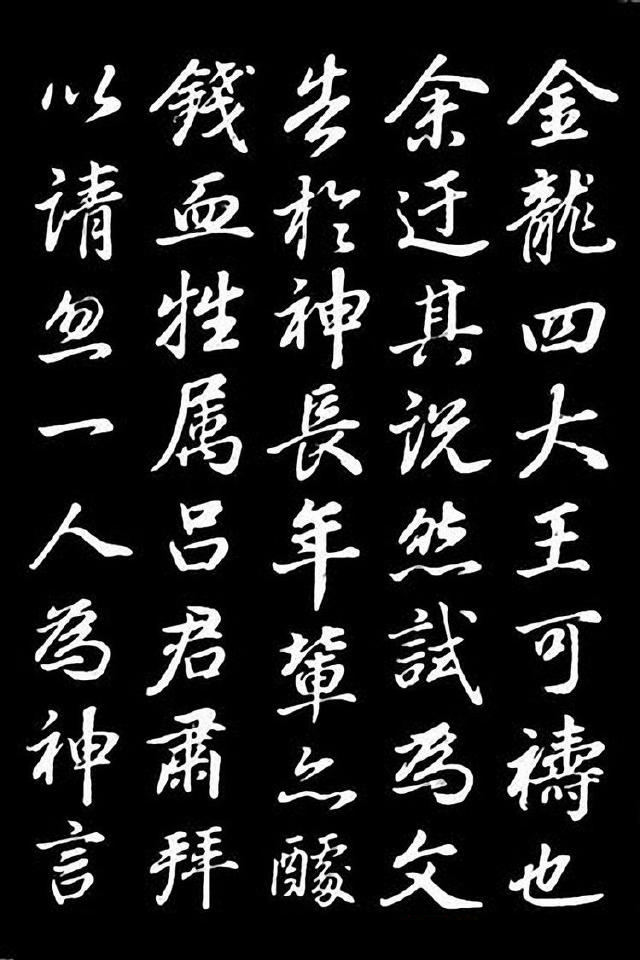 金龍四大王可禱也
余迂其説然試為文
告於神長年輩亦醵
錢血牲属吕君肅拜
以请忽一人為神言